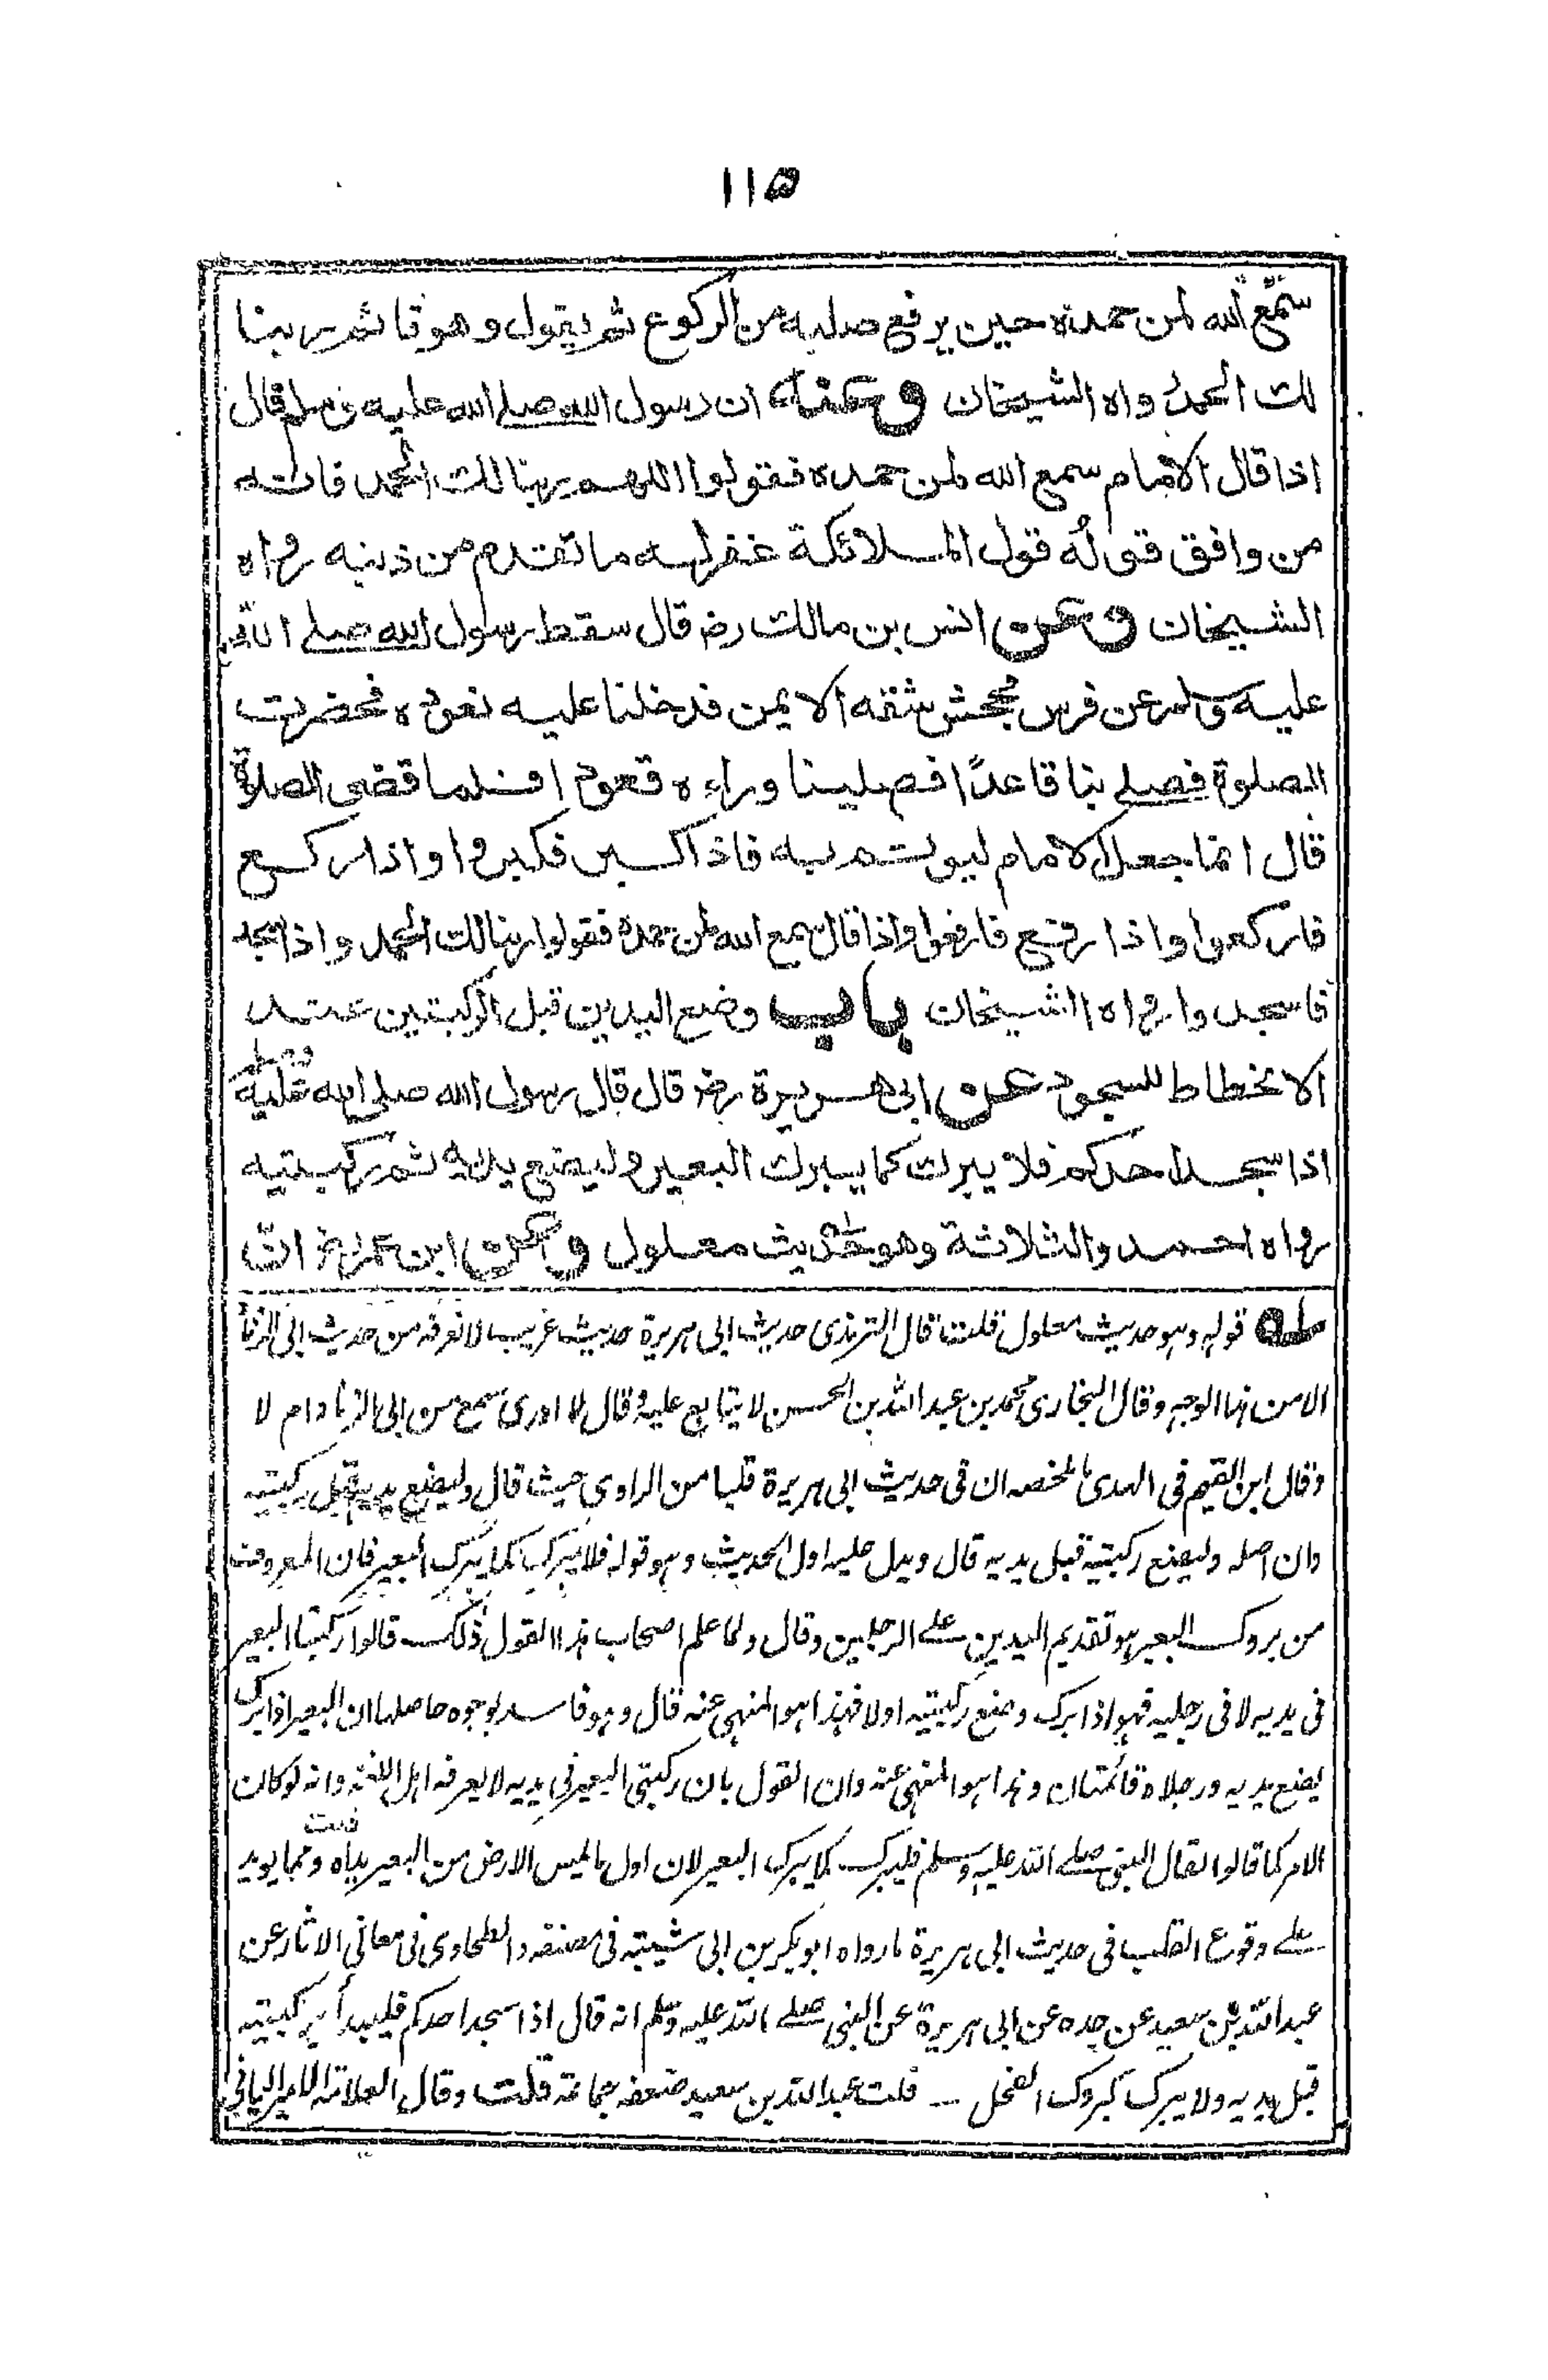 ١١٥
سمع الله لمن حمده حين يرفع صلبه من الركوع ثم يقول وهو قائم ربنا
لك الحمد رواه الشيخان وعنه ان رسول الله صلى الله عليه وسلم قال
اذا قال الامام سمع الله لمن حمده فقولوا اللهم ربنا لك الحمد فانه
من وافق قوله قول الملائكة غفر له ما تقدم من ذنبه رواه
الشيخان وعن انس بن مالك رضـ قال سقط رسول الله صلى الله
عليه وسلم عن فرس فجحش شقه الايمن فدخلنا عليه نعوده فحضرت
الصلوة فصلى بنا قاعدًا فصلينا وراءه قعودا فلما قضى الصلاة
قال انما جعل الامام ليوتم به فاذا كبر فكبروا واذا ركع
فاركعوا واذا رفع فارفعوا واذا قال سمع الله لمن حمده فقولوا ربنا لك الحمد واذا سجد
فاسجدوا رواه الشيخان باب وضع اليدين قبل الركبتين عند
الانحطاط للسجود عن ابى هريرة رضـ قال قال رسول الله صلى الله عليه وسلم
اذا سجد احدكم فلا يبرك كما يبرك البعير وليضع يديه ثم ركبتيه
رواه احمد والثلاثة وهو حديث معلول وعن ابن عمر رضـ ان
له قوله وهو حديث معلول قلت قال الترمذى حديث ابى هريرة حديث غريب لا نعرفه من حديث ابى الزناد
الا من هذا الوجه وقال البخارى محمد بن عبد الله بن الحسن لا يتابع عليه وقال لا ادرى سمع من ابى الزناد ام لا
وقال ابن القيم فى الهدى ما ملخصه ان فى حديث ابى هريرة قلبا من الراوى حيث قال وليضع يديه قبل ركبتيه
وان اصله وليضع ركبتيه قبل يديه قال ويدل عليه اول الحديث وهو قوله فلا يبرك كما يبرك البعير فان المعروف
من بروك البعير هو تقديم اليدين على الرجلين وقال ولما علم اصحاب هذا القول ذلك قالوا ركبتا البعير
فى يديه لا فى رجليه فهو اذا برك وضع ركبتيه اولا فهذا هو المنهى عنه قال وهو فاسد لوجوه حاصلها ان البعير اذا برك
يضع يديه ورجلاه قائمتان وهذا هو المنهى عنه وان القول بان ركبتى البعير فى يديه لا يعرفه اهل اللغة وانه لو كان
الامر كما قالوا لقال النبى صلى الله عليه وسلم فليبرك كما يبرك البعير لان اول ما يمس الارض من البعير يداه قلت ومما يويد
على وقوع القلب فى حديث ابى هريرة ما رواه ابو بكر بن ابى شيبة فى مصنفه والطحاوى فى معانى الاثار عن
عبد الله بن سعيد عن جده عن ابى هريرة عن النبى صلى الله عليه وسلم انه قال اذا سجد احدكم فليبدأ بركبتيه
قبل يديه ولا يبرك كبروك الفحل -- قلت عبد الله بن سعيد ضعفه جماعة قلت وقال العلامة الامير اليمانى